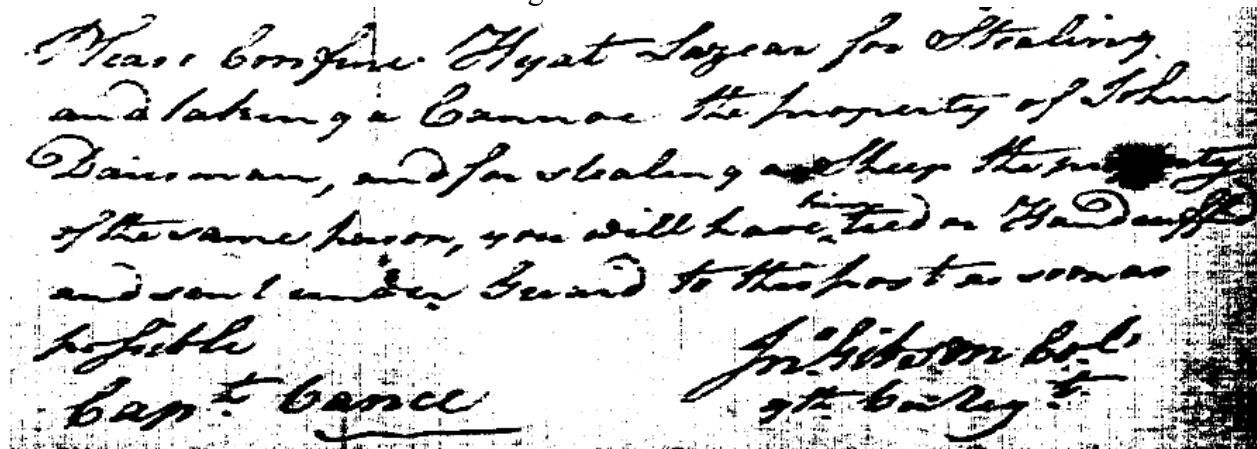 Please Confine Hyat Lazear for Stealing
and taking a Cannoe the property of John
Dairsman, and for stealing a Sheep the property
of the same person, you will have him tied or Handcuff'd
and sent under Guard to this post as soon as
possible
Jno. Gibson Col.
Capt. Vance
9th Va Regt.